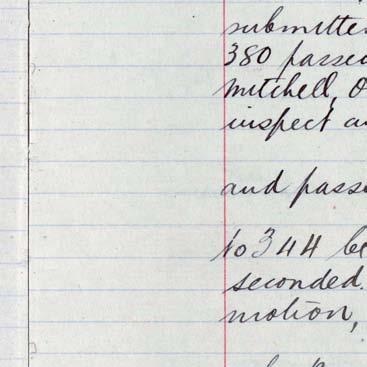 submitte
380 passe
Mitchell, O
inspect an
and pass
to 344 be
seconded.
motion,